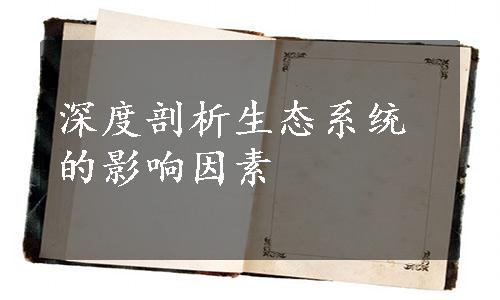 深度剖析生态系统
的影响因素